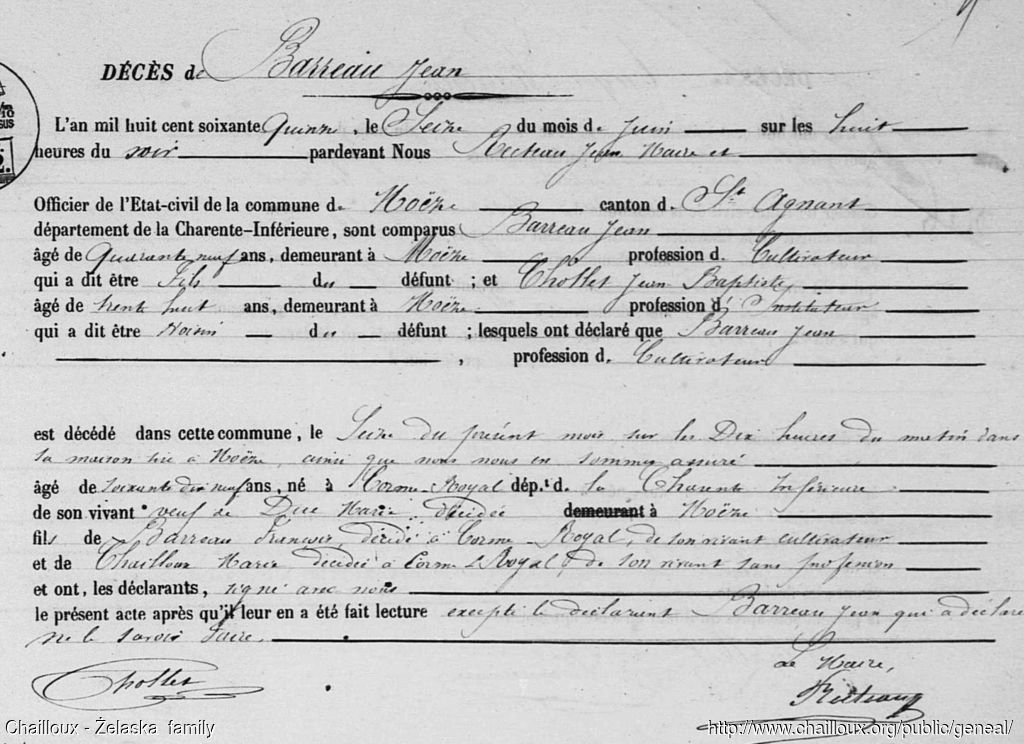 DÉCÈS de Barreau Jean
L'an mil huit cent soixante Quinze, le Seize du mois de Juin sur les huit
heures du soir pardevant Nous Jean Maire et
Officier de l'Etat-civil de la commune de Moëze canton d. St Agnant
département de la Charente-Inférieure, sont comparus Barreau Jean
âgé de Quarante neuf ans, demeurant à Moëze profession d. Cultivateur
qui a dit être fils du défunt ; et Chollet Jean Baptiste,
âgé de trente huit ans, demeurant à Moëze profession d' Instituteur
qui a dit être Voisin du défunt ; lesquels ont déclaré que Barreau Jean
, profession d. Cultivateur
est décédé dans cette commune, le Seize du présent mois sur les Dix heures du matin dans
sa maison sise à Moëze, ainsi que nous nous en sommes assuré
âgé de soixante dix neuf ans, né à Corme-Royal dép.t d. la Charente Inférieure
de son vivant veuf de Marie, décédée demeurant à Moëze
fils de Barreau François, décédé à Corme-Royal, de son vivant cultivateur
et de Chailloux Marie décédée à Corme Royal, de son vivant sans profession
et ont, les déclarants, signé avec nous
le présent acte après qu'il leur en a été fait lecture excepté le déclarant Barreau Jean qui a déclaré
ne le savoir faire.
Le Maire,
Chollet
Chailloux - Żelaska family
http://www.chailloux.org/public/geneal/